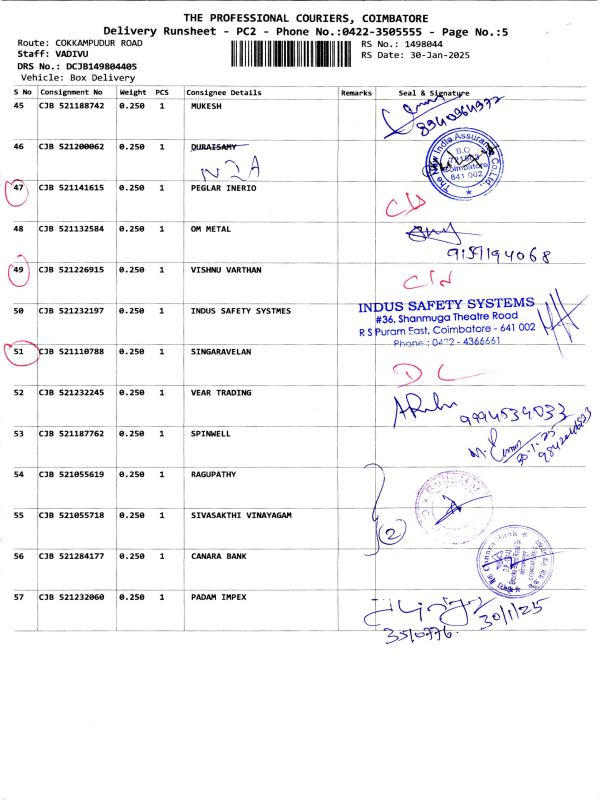 THE PROFESSIONAL COURIERS, COIMBATORE
Delivery Runsheet - PC2 - Phone No.:0422-3505555 - Page No.:5
Route: COKKAMPUDUR ROAD
RS No.: 1498044
Staff: VADIVU
RS Date: 30-Jan-2025
DRS No.: DCJB149804405
Vehicle: Box Delivery
S No Consignment No Weight PCS Consignee Details Remarks Seal & Signature
45 CJB 521188742 0.250 1 MUKESH
8940964372
46 CJB 521200062 0.250 1 DURAISAMY
N2A
The New India Assurance Co.Ltd.
B.O
Coimbatore
641 002
47 CJB 521141615 0.250 1 PEGLAR INERIO
48 CJB 521132584 0.250 1 OM METAL
9159194068
49 CJB 521226915 0.250 1 VISHNU VARTHAN
50 CJB 521232197 0.250 1 INDUS SAFETY SYSTMES
INDUS SAFETY SYSTEMS
#36, Shanmuga Theatre Road
R S Puram East, Coimbatore - 641 002
Phone : 0422 - 4366661
51 CJB 521110788 0.250 1 SINGARAVELAN
DL
52 CJB 521232245 0.250 1 VEAR TRADING
9994534033
53 CJB 521187762 0.250 1 SPINWELL
54 CJB 521055619 0.250 1 RAGUPATHY
55 CJB 521055718 0.250 1 SIVASAKTHI VINAYAGAM
2
56 CJB 521284177 0.250 1 CANARA BANK
Canara Bank
57 CJB 521232060 0.250 1 PADAM IMPEX
30/1/25
350776.